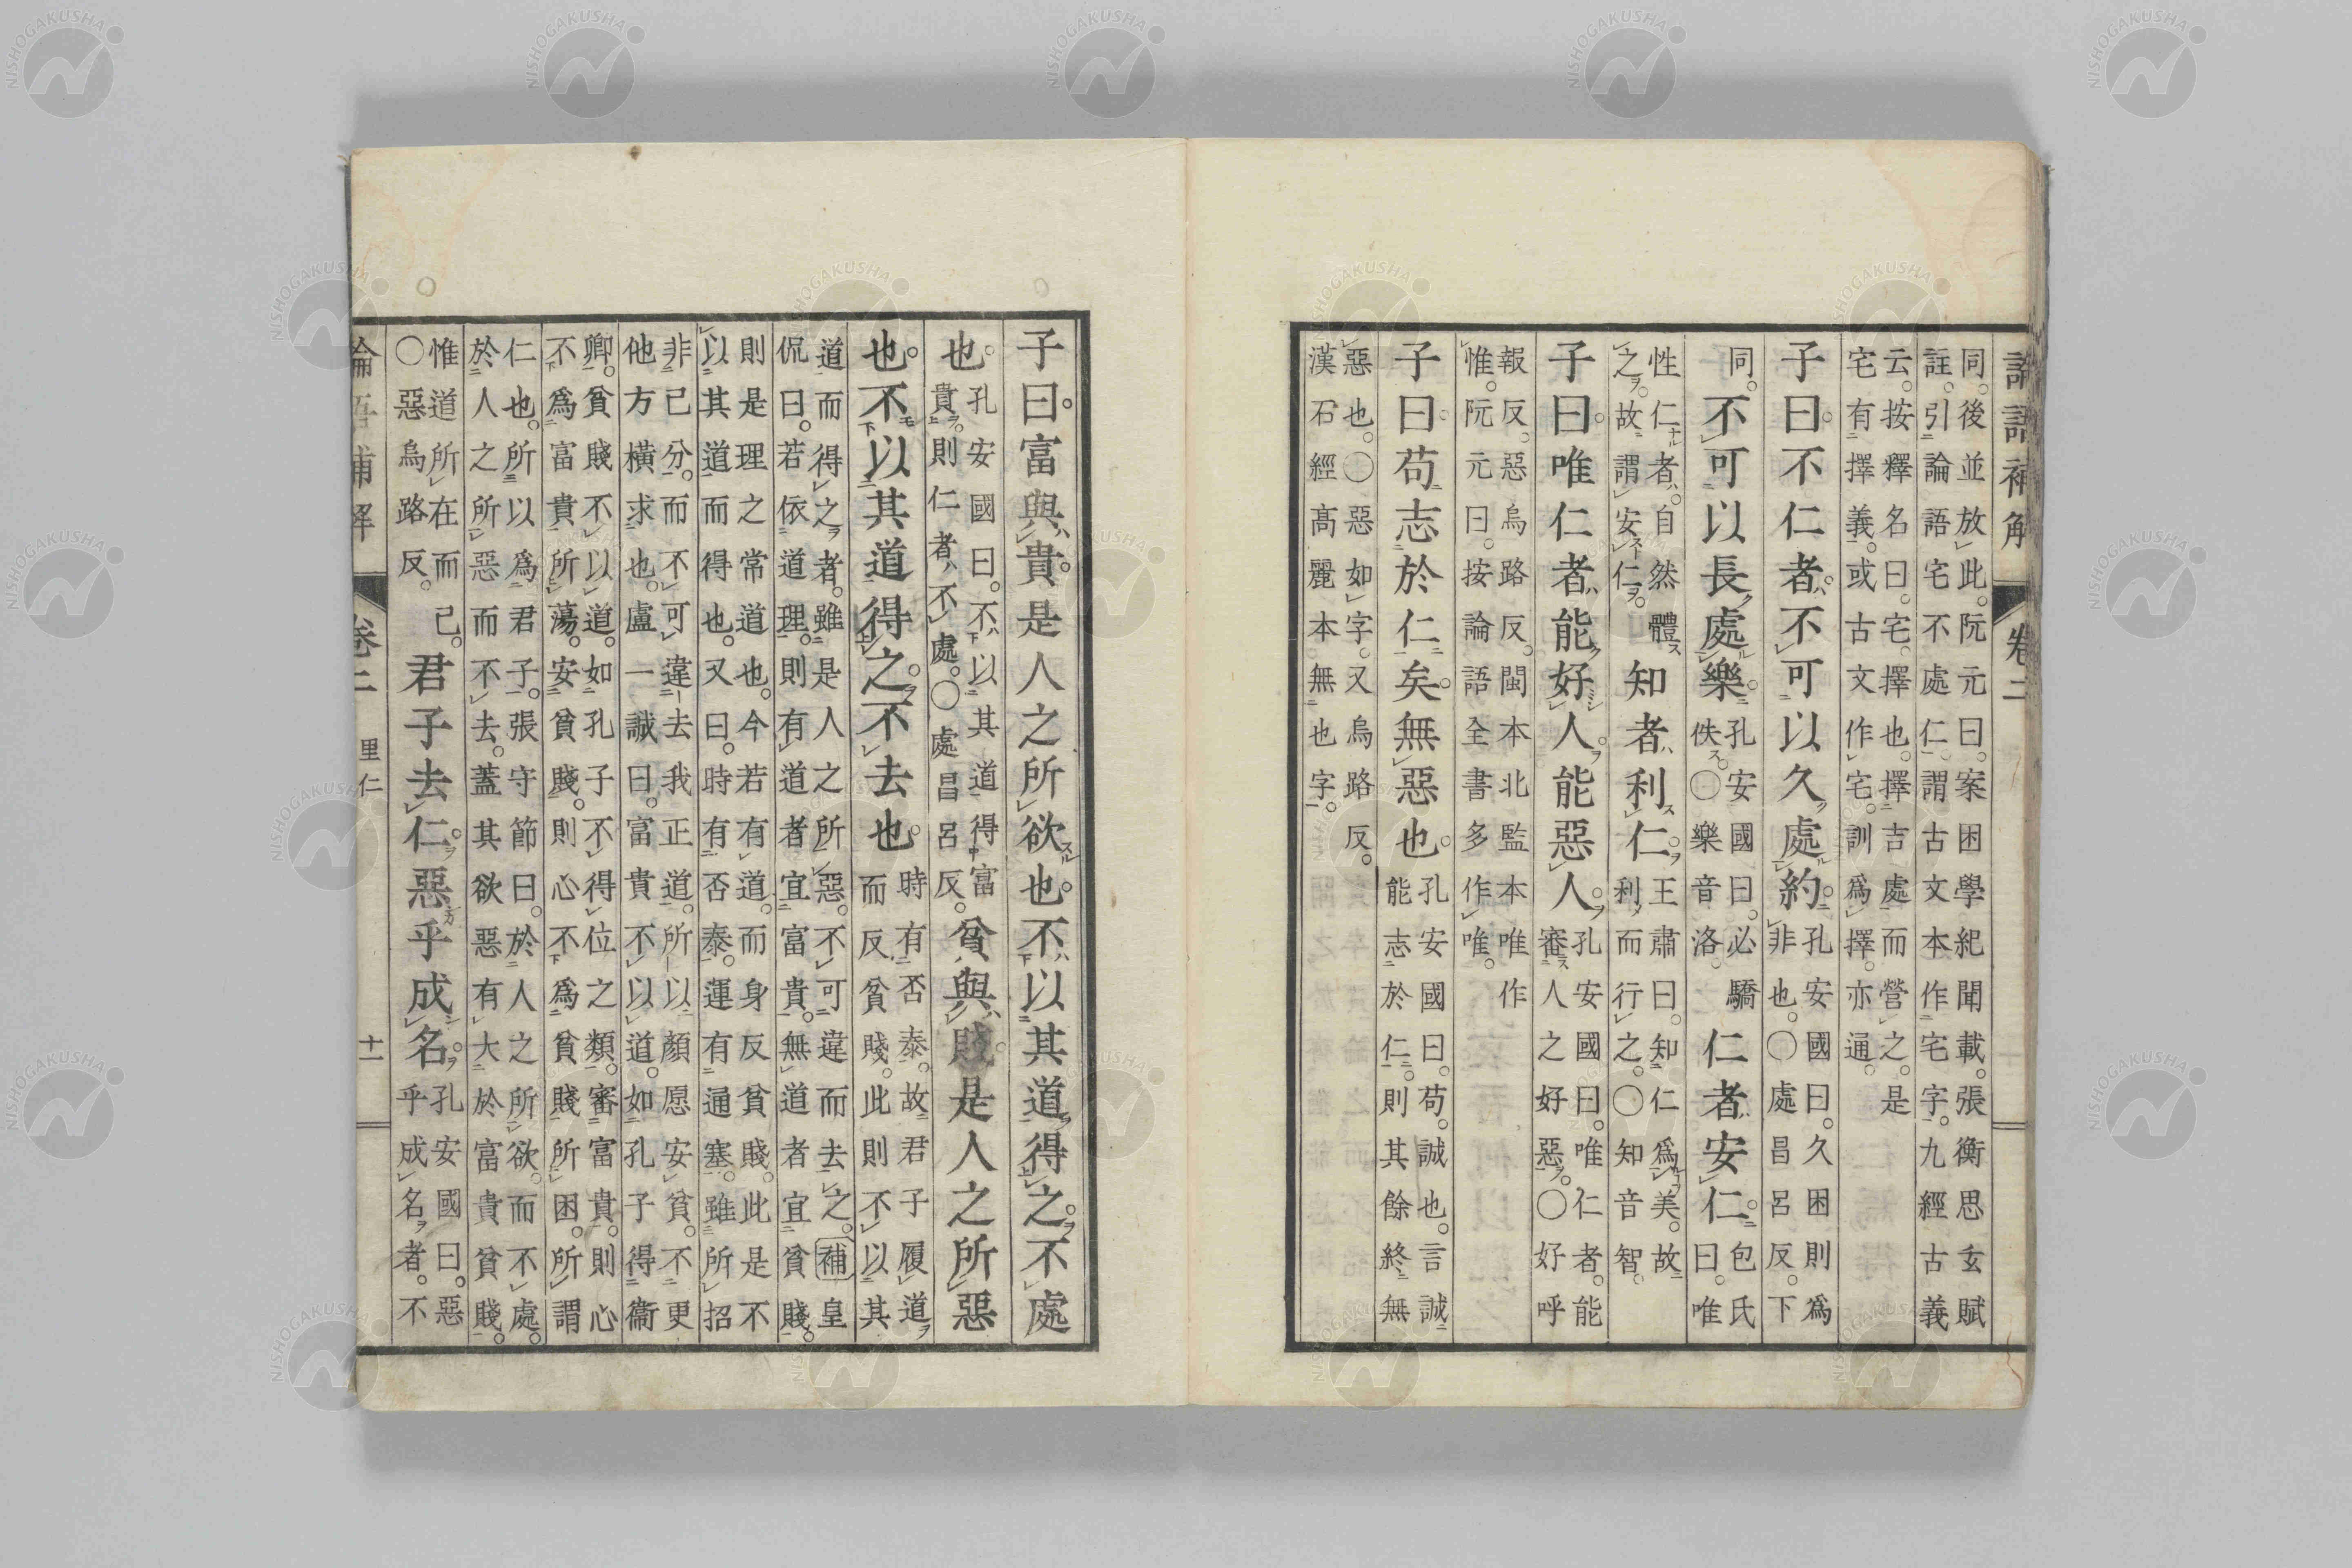 論語補解 卷二
同。後並放此。阮元曰。案困學紀聞載。張衡思玄賦
註。引論語宅不處仁。謂古文本作宅字。九經古義
云。按釋名曰。宅。擇也。擇吉處而營之。是
宅有擇義。或古文作宅。訓爲擇。亦通。
子曰。不仁者。不可以久處約。孔安國曰。久困則爲
非也。〇處昌呂反。下
同。
不可以長處樂。孔安國曰。必驕
佚。〇樂音洛。
仁者安仁。包氏
曰。唯
性仁者。自然體
之。故謂安仁。
知者利仁。王肅曰。知仁爲美。故
利而行之。〇知音智。
子曰。唯仁者能好人。能惡人。孔安國曰。唯仁者。能
審人之好惡。〇好呼
報反。惡烏路反。閩本北監本唯作
惟。阮元曰。按論語全書多作唯。
子曰。苟志於仁矣。無惡也。孔安國曰。苟。誠也。言誠
能志於仁。則其餘終無
惡也。〇惡如字。又烏路反。
漢石經高麗本無也字。
子曰。富與貴。是人之所欲也。不以其道得之。不處
也。孔安國曰。不以其道得富
貴。則仁者不處。〇處昌呂反。
貧與賤。是人之所惡
也。不以其道得之。不去也。時有否泰。故君子履道
而反貧賤。此則不以其
道而得之者。雖是人之所惡。不可違而去之。補皇
侃曰。若依道理。則有道者宜富貴。無道者宜貧賤。
則是理之常道也。今若有道。而身反貧賤。此是不
以其道而得也。又曰。時有否泰。運有通塞。雖所招
非己分。而不可違去我正道。所以顏愿安貧。不更
他方橫求也。盧一誠曰。富貴不以道。如孔子得衞
卿。貧賤不以道。如孔子不得位之類。審富貴。則心
不爲富貴所蕩。安貧賤。則心不爲貧賤所困。所謂
仁也。所以爲君子。張守節曰。於人之所欲。而不處。
於人之所惡而不去。蓋其欲惡有大於富貴貧賤。
惟道所在而已。
〇惡烏路反。
君子去仁。惡乎成名。孔安國曰。惡
乎成名者。不
論語補解 卷二 里仁 十一